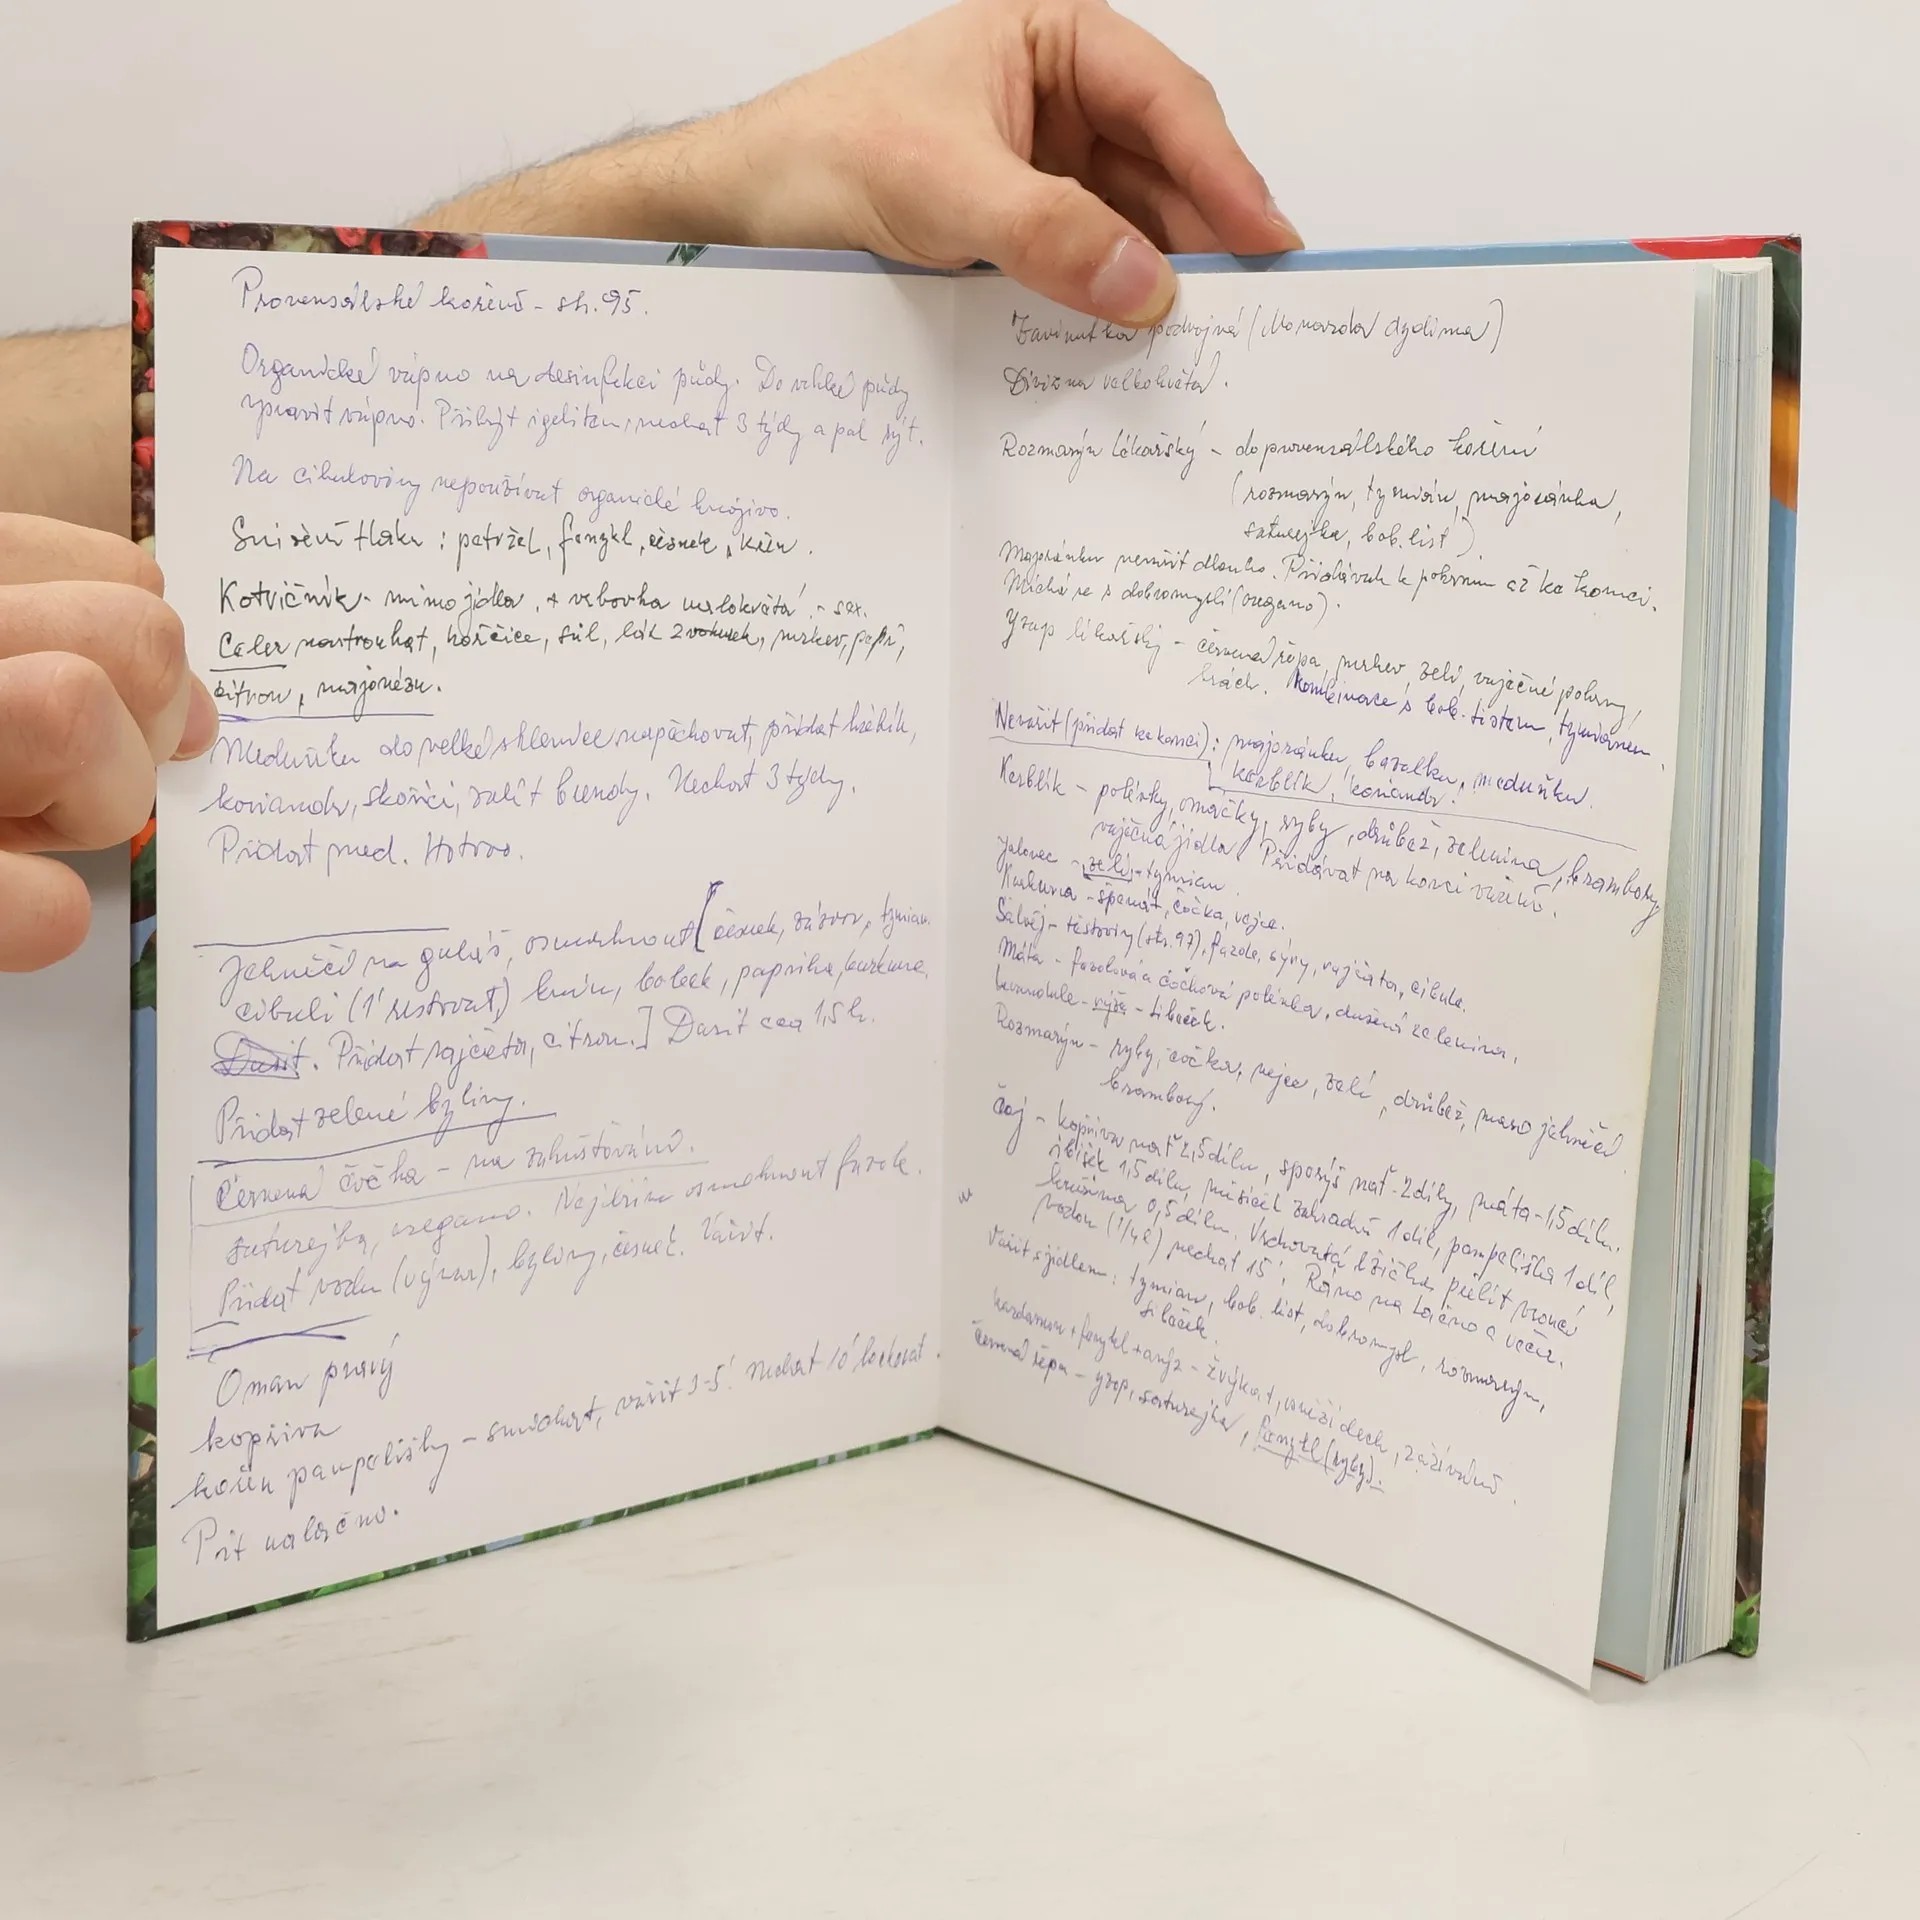 Provensálské koření - str. 95.
Organické vápno na desinfekci půdy. Do vlhké půdy
vpravit vápno. Přikrýt igelitem, nechat 3 týdny a pak rýt.
Na cibuloviny nepoužívat organické hnojivo.
Snížení tlaku : petržel, fenykl, česnek, křen.
Kotvičník - mimo jídla, + vrbovka malokvětá. - sex.
Celer nastrouhat, hořčice, sůl, lák z okurek, mrkev, pepř,
citron, majonézu.
Meduňku do velké sklenice napěchovat, přidat hřebík,
koriandr, skořici, zalít brendy. Nechat 3 týdny.
Přidat med. Hotovo.
Jehněčí na guláš, osmahnout [česnek, zázvor, tymian.
cibuli (1' restovat) kmín, bobek, paprika, kurkuma,
Dusit. Přidat rajčata, citron.] Dusit cca 1,5 h.
Přidat zelené byliny.
Červená čočka - na zahušťování.
saturejka, oregano. Nejdřív osmahnout fazole.
Přidat vodu (vývar), byliny, česnek. Vařit.
Oman pravý
kopřiva
kořen pampelišky - smíchat, vařit 3-5'. Nechat 10' louhovat.
Pít nalačno.
Zavinutka podvojná (Monarda dydima)
Divizna velkokvětá.
Rozmarýn lékařský - do provensálského koření
(rozmarýn, tymián, majoránka,
saturejka, bob. list).
Majoránku nevařit dlouho. Přidávat k pokrmu až ke konci.
Míchá se s dobromyslí (oregano).
Yzop lékařský - červená řepa, mrkev, zelí, vaječné pokrmy,
hrách. Kombinace s bob. listem, tymiánem.
Nevařit (přidat na konci) : majoránku, bazalku, meduňku.
kerblík, koriandr.
Kerblík - polévky, omáčky, ryby, drůbež, zelenina, brambory,
vaječná jídla. Přidávat na konci vaření.
Jalovec - zelí - tymian.
Kurkuma - špenát, čočka, vejce.
Šalvěj - těstoviny (str. 97), fazole, sýry, rajčata, cibule.
Máta - fazolová a čočková polévka, dušená zelenina.
Levandule - rýže - libeček.
Rozmarýn - ryby, čočka, vejce, zelí, drůbež, maso jehněčí.
brambory.
Čaj - kopřiva nať 2,5 dílu, sporýš nať - 2 díly, máta - 1,5 dílu.
ibišek 1,5 dílu, měsíček zahradní 1 díl, pampeliška 1 díl,
krušina 0,5 dílu. Vrchovatá lžička přelít vroucí
vodou (1/4 l) nechat 15'. Ráno na lačno a večer.
Vařit s jídlem : tymian, bob. list, dobromysl, rozmarýn,
libeček.
kardamon + fenykl + anýz - žvýkat, svěží dech, zažívání.
červená řepa - yzop, saturejka, fenykl (ryby).